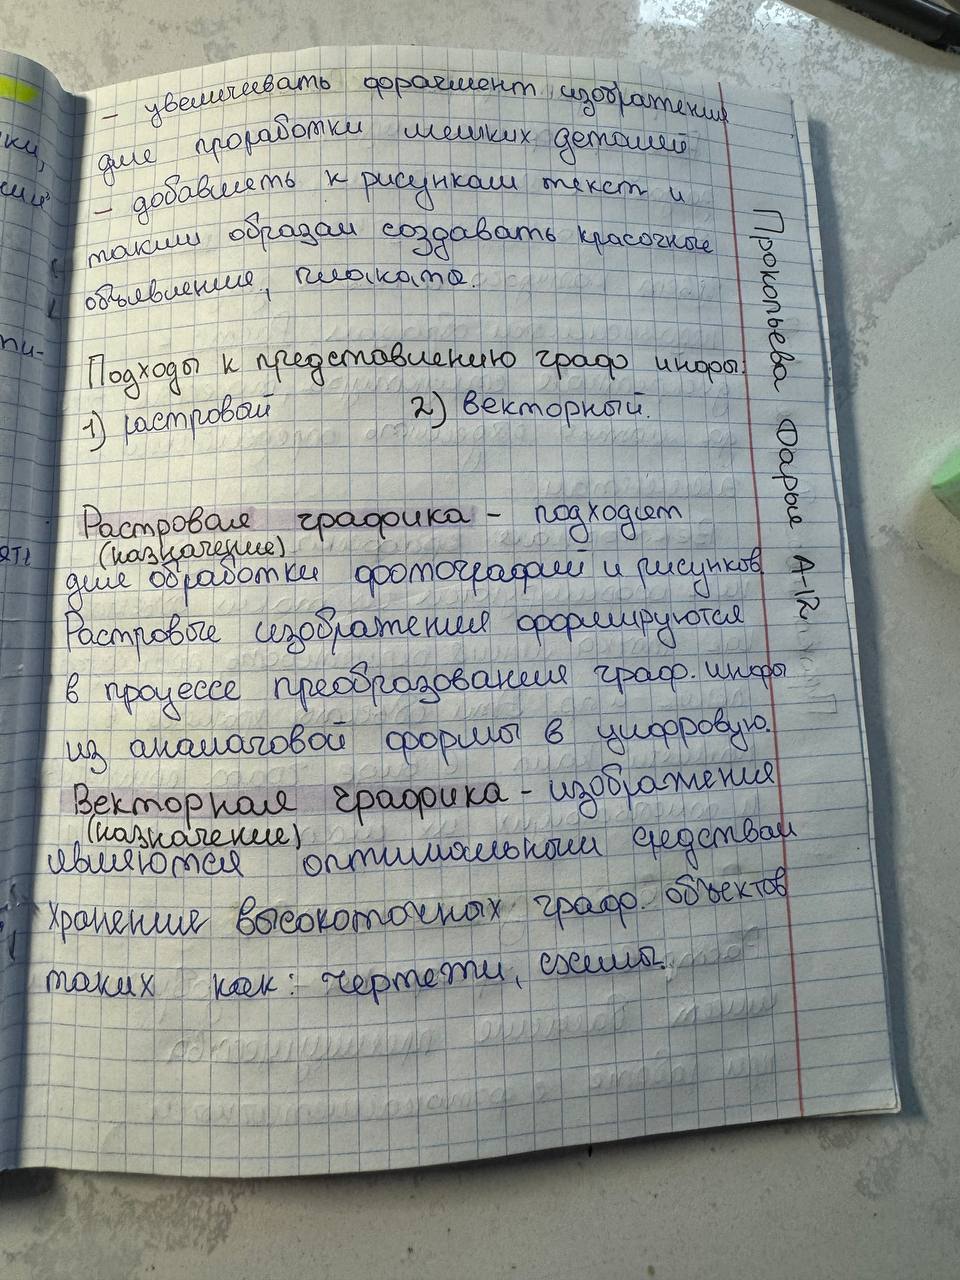 - увеличивать фрагмент изображения
для проработки мелких деталей
- добавлять к рисункам текст и
таким образом создавать красочные
объявления, плаката.
Подходы к представлению граф инфры:
1) растровый 2) векторный.
Растровая графика - подходит
(назначение)
для обработки фотографий и рисунков
Растровые изображения формируются
в процессе преобразования граф. инфры
из аналаговой формы в цифровую.
Векторная графика - изображения
(назначение)
являются оптимальным средствам
хранения высокоточных граф. объектов
таких как: чертежи, схемы.
Прокопьева Дарья А-12